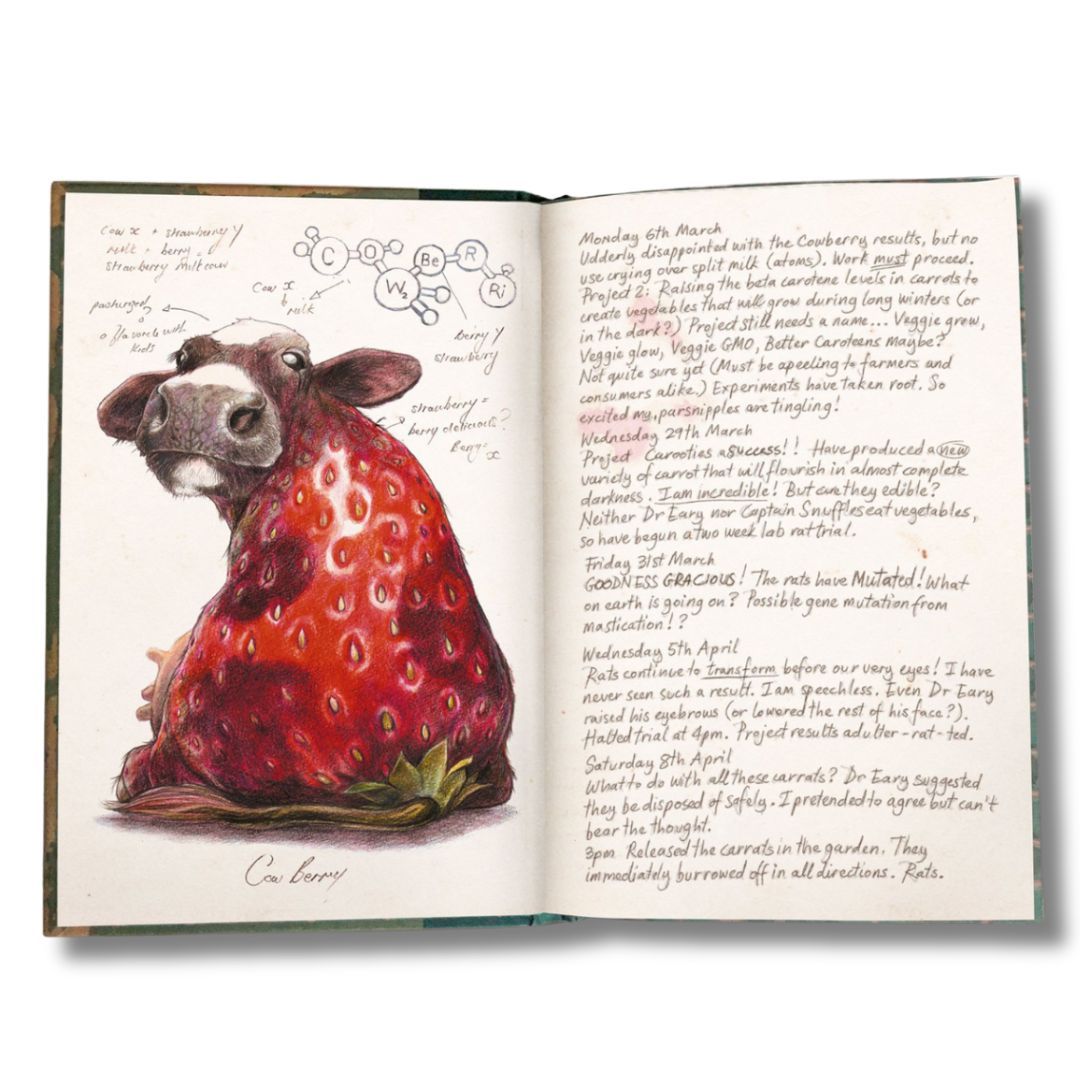 Cow x + strawberry y
milk + berry =
strawberry milk cow
C O W₂ Be R Ri
Cow x
milk
pasturized
flavored with
kids
berry y
strawberry
strawberry =
berry delicious?
Berry =
x
Cow Berry
Monday 6th March
Udderly disappointed with the Cowberry results, but no
use crying over split milk (atoms). Work must proceed.
Project 2: Raising the beta carotene levels in carrots to
create vegetables that will grow during long winters (or
in the dark?) Project still needs a name... Veggie grow,
Veggie glow, Veggie GMO, Better Caroteens Maybe?
Not quite sure yet (Must be apeeling to farmers and
consumers alike.) Experiments have taken root. So
excited my parsnipples are tingling!
Wednesday 29th March
Project Carooties a success!! Have produced a new
variety of carrot that will flourish in almost complete
darkness. I am incredible! But are they edible?
Neither Dr Eary nor Captain Snuffles eat vegetables,
so have begun a two week lab rat trial.
Friday 31st March
GOODNESS GRACIOUS! The rats have Mutated! What
on earth is going on? Possible gene mutation from
mastication!?
Wednesday 5th April
Rats continue to transform before our very eyes! I have
never seen such a result. I am speechless. Even Dr Eary
raised his eyebrows (or lowered the rest of his face?).
Halted trial at 4pm. Project results adulter-rat-ted.
Saturday 8th April
What to do with all these carrats? Dr Eary suggested
they be disposed of safely. I pretended to agree but can't
bear the thought.
3pm Released the carrats in the garden. They
immediately burrowed off in all directions. Rats.